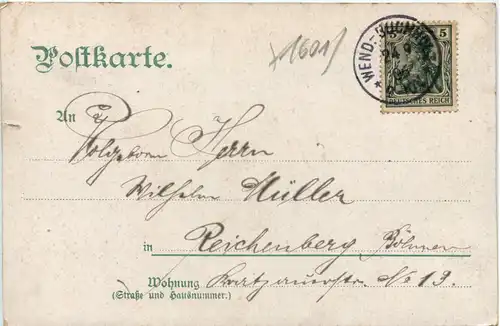 *1601)
WEND-BUCHHOLZ
5
DEUTSCHES REICH
Postkarte.
An
Wolgeborn Herrn
Wilhelm Müller
in Reichenberg Böhmen
Wohnung No 13.
(Straße und Hausnummer.)